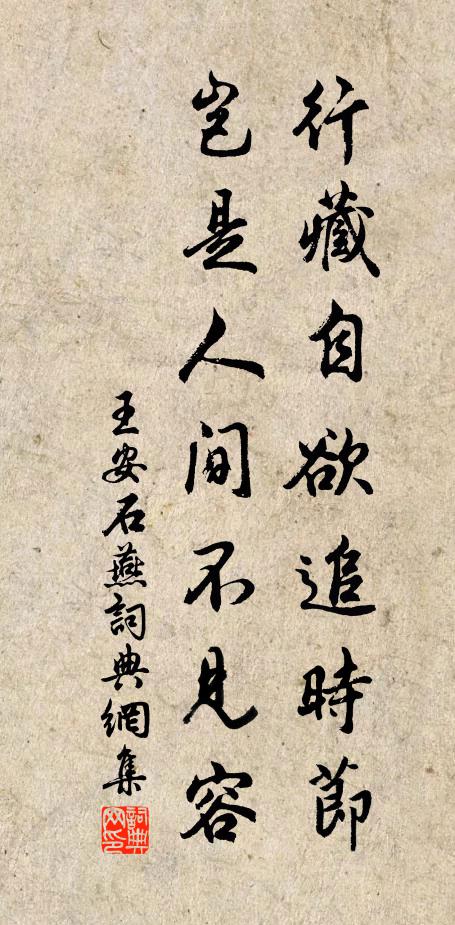 行藏自欲追時節
豈是人間不見容
王安石燕詞典網集
詞典网印